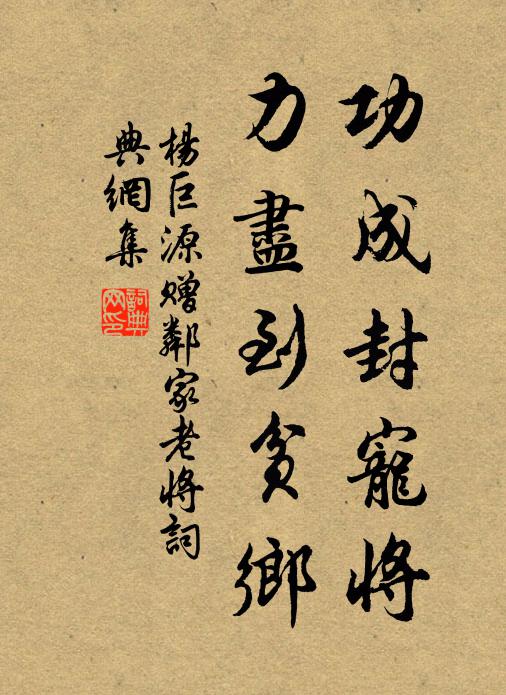 功成封寵將
力盡到貧鄉
楊巨源贈鄰家老將詞
典網集
詞典網印